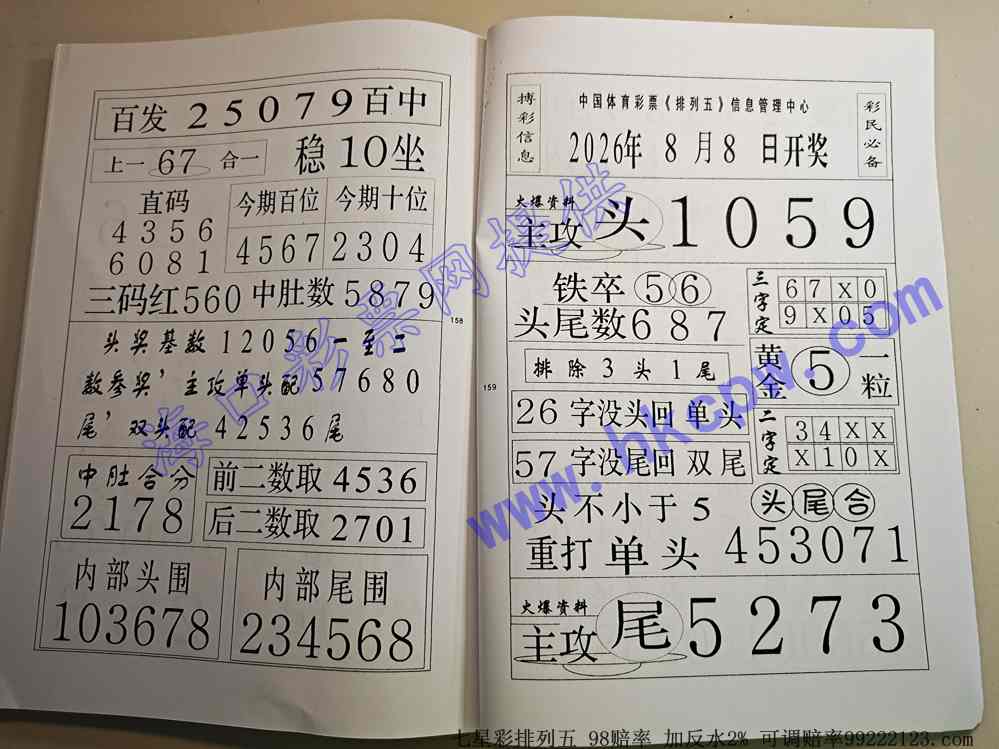 百发 25079 百中
上一 67 合一
稳 10 坐
直码
4356
6081
今期百位
4567
今期十位
2304
三码红560 中肚数5879
头奖基数12056一至二
数参奖’主攻单头配57680
尾’双头配42536尾
中肚合分
2178
前二数取4536
后二数取2701
内部头围
103678
内部尾围
234568
158
159
搏彩信息
中国体育彩票《排列五》信息管理中心
2026年 8 月8 日开奖
彩民必备
火爆资料
主攻 头 1059
铁卒 ⑤⑥
头尾数687
三字定
67X0
9X05
排除3头1尾
黄金 ⑤ 一粒
26字没头回单头
57字没尾回双尾
二字定
34XX
X10X
头不小于5
头尾合
重打单头 453071
火爆资料
主攻 尾 5273
海口彩票网提供
www.hkcpw.com
七星彩排列五 98赔率 加反水2% 可调赔率99222123.com